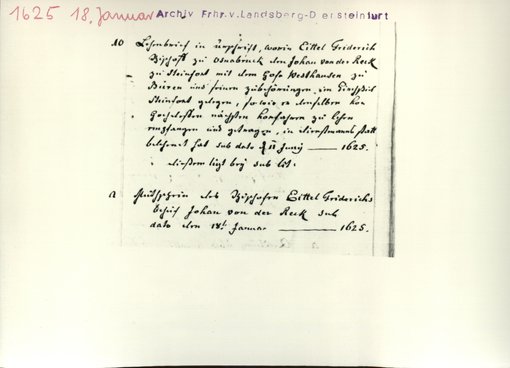 1625 18. Januar Archiv Frhr.v.Landsberg-D ersteinfurt
10 Lehnbrief in Urschrift, worin Eittel Friderich
Bischoff zu Osnabruck den Johan von der Reck
zu Steinfort mit dem Hofe Westhausen zu
Büren und seinen zubehörungen im Kirchspiel
Steinfort gelegen, so wie er denselben von
nächsten Vorfahren zu Lehen
empfangen und getragen, in dienstmanns statt
belehnet hat sub dato 11 Junij 1625.
diesem ligt bey sub lit:
des Bischofen Eittel Friderichs
behuf Johan von der Reck sub
dato den 18t Januar 1625.